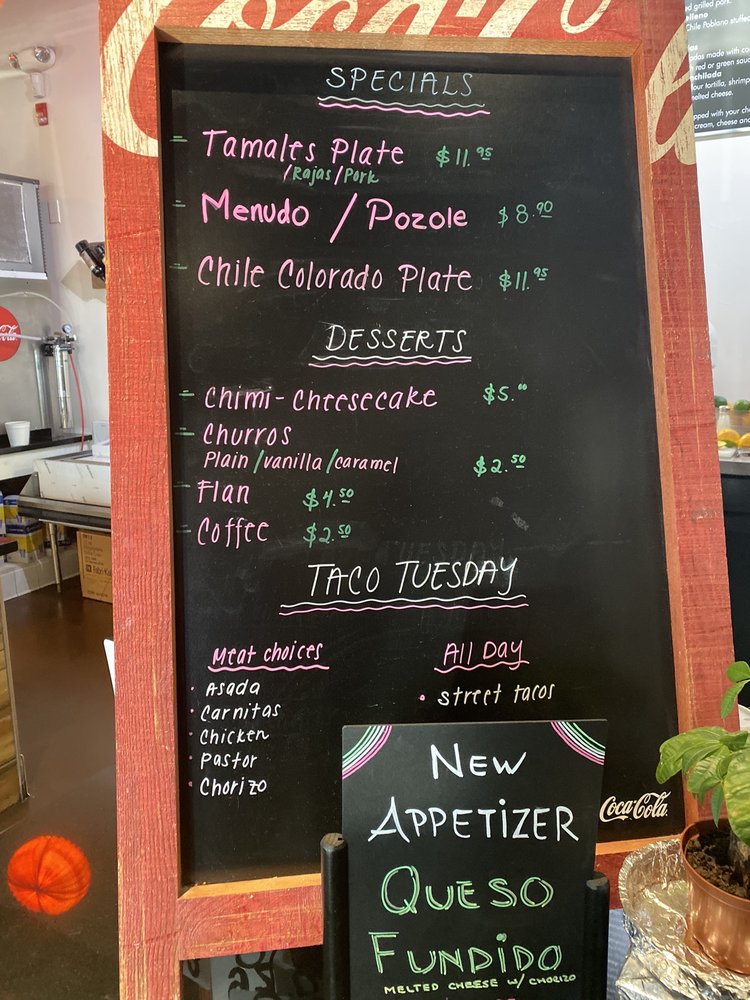 Coca-Cola
SPECIALS
Tamales Plate $11.95
/Rajas/Pork
Menudo / Pozole $8.90
Chile Colorado Plate $11.95
DESSERTS
Chimi-Cheesecake $5.00
Churros
Plain/vanilla/caramel $2.50
Flan $4.50
Coffee $2.50
TACO TUESDAY
Meat choices
• Asada
• Carnitas
• Chicken
• Pastor
• Chorizo
All Day
• street tacos
Coca-Cola
NEW
APPETIZER
QUESO
FUNDIDO
MELTED CHEESE W/ CHORIZO
grilled pork.
Chile Poblano stuffed
red or green sauc
tortilla, shrimp
melted cheese.
with your
cream, cheese and